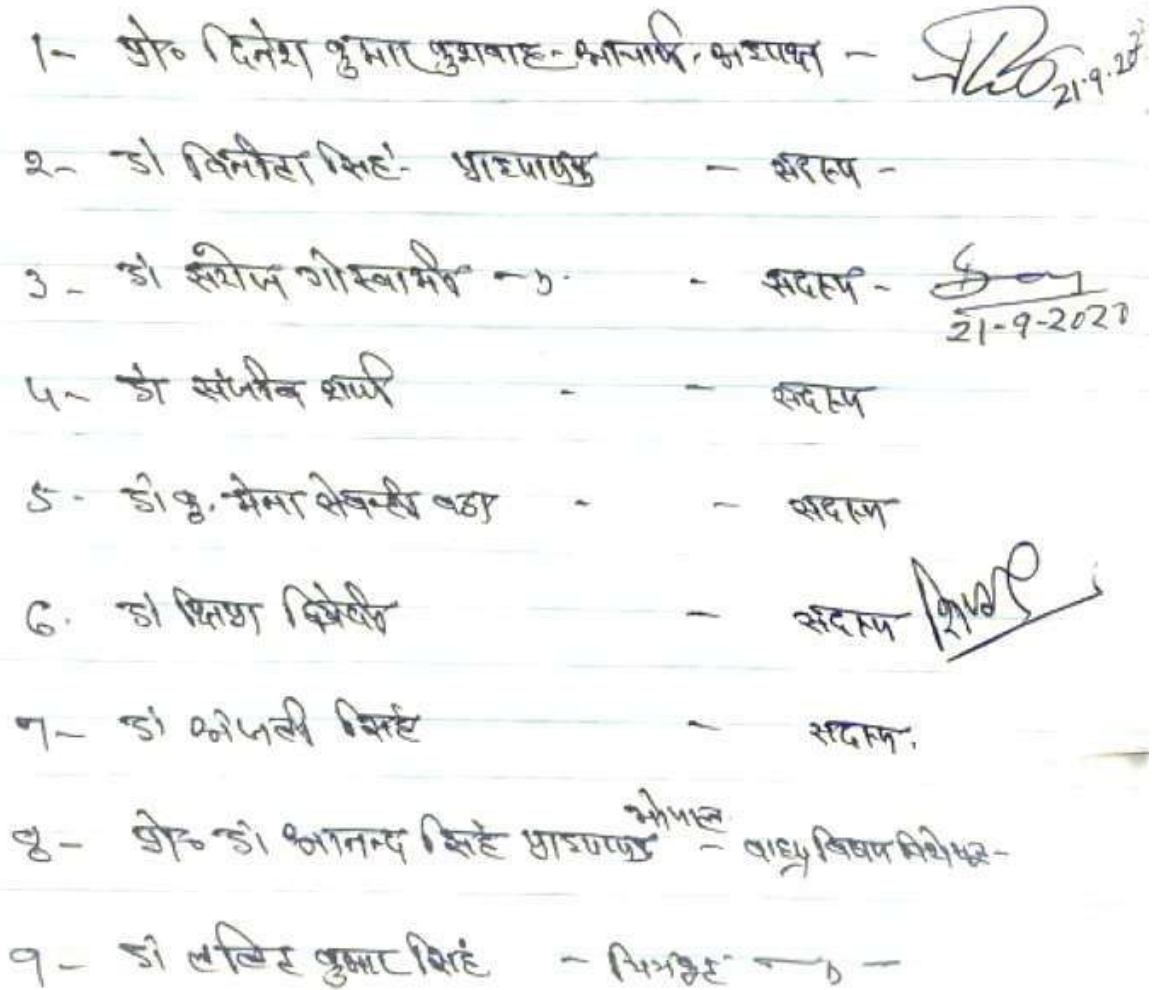 1- प्रो० दिनेश कुमार कुशवाह - आचार्य - अध्यक्ष - 21.9.20
2- डॉ विनीता सिंह - प्राध्यापक - सदस्य -
3- डॉ सरोज गोस्वामी -"- - सदस्य - 21-9-2020
4- डॉ संजीव शर्मा - - सदस्य
5- डॉ कु. - - सदस्य
6. डॉ द्विवेदी - सदस्य
7- डॉ अंजली सिंह - सदस्य.
8- प्रो० डॉ आनन्द सिंह प्राध्यापक भोपाल - बाह्य विषय विशेषज्ञ -
9- डॉ ललित कुमार सिंह - चित्रकूट -"-